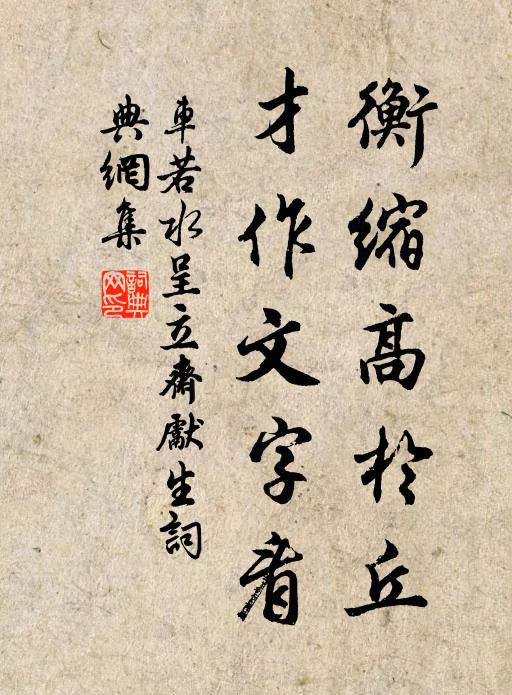 衡缩高於丘
才作文字看
車若水呈立齋獻生詞
典網集
詞典網印